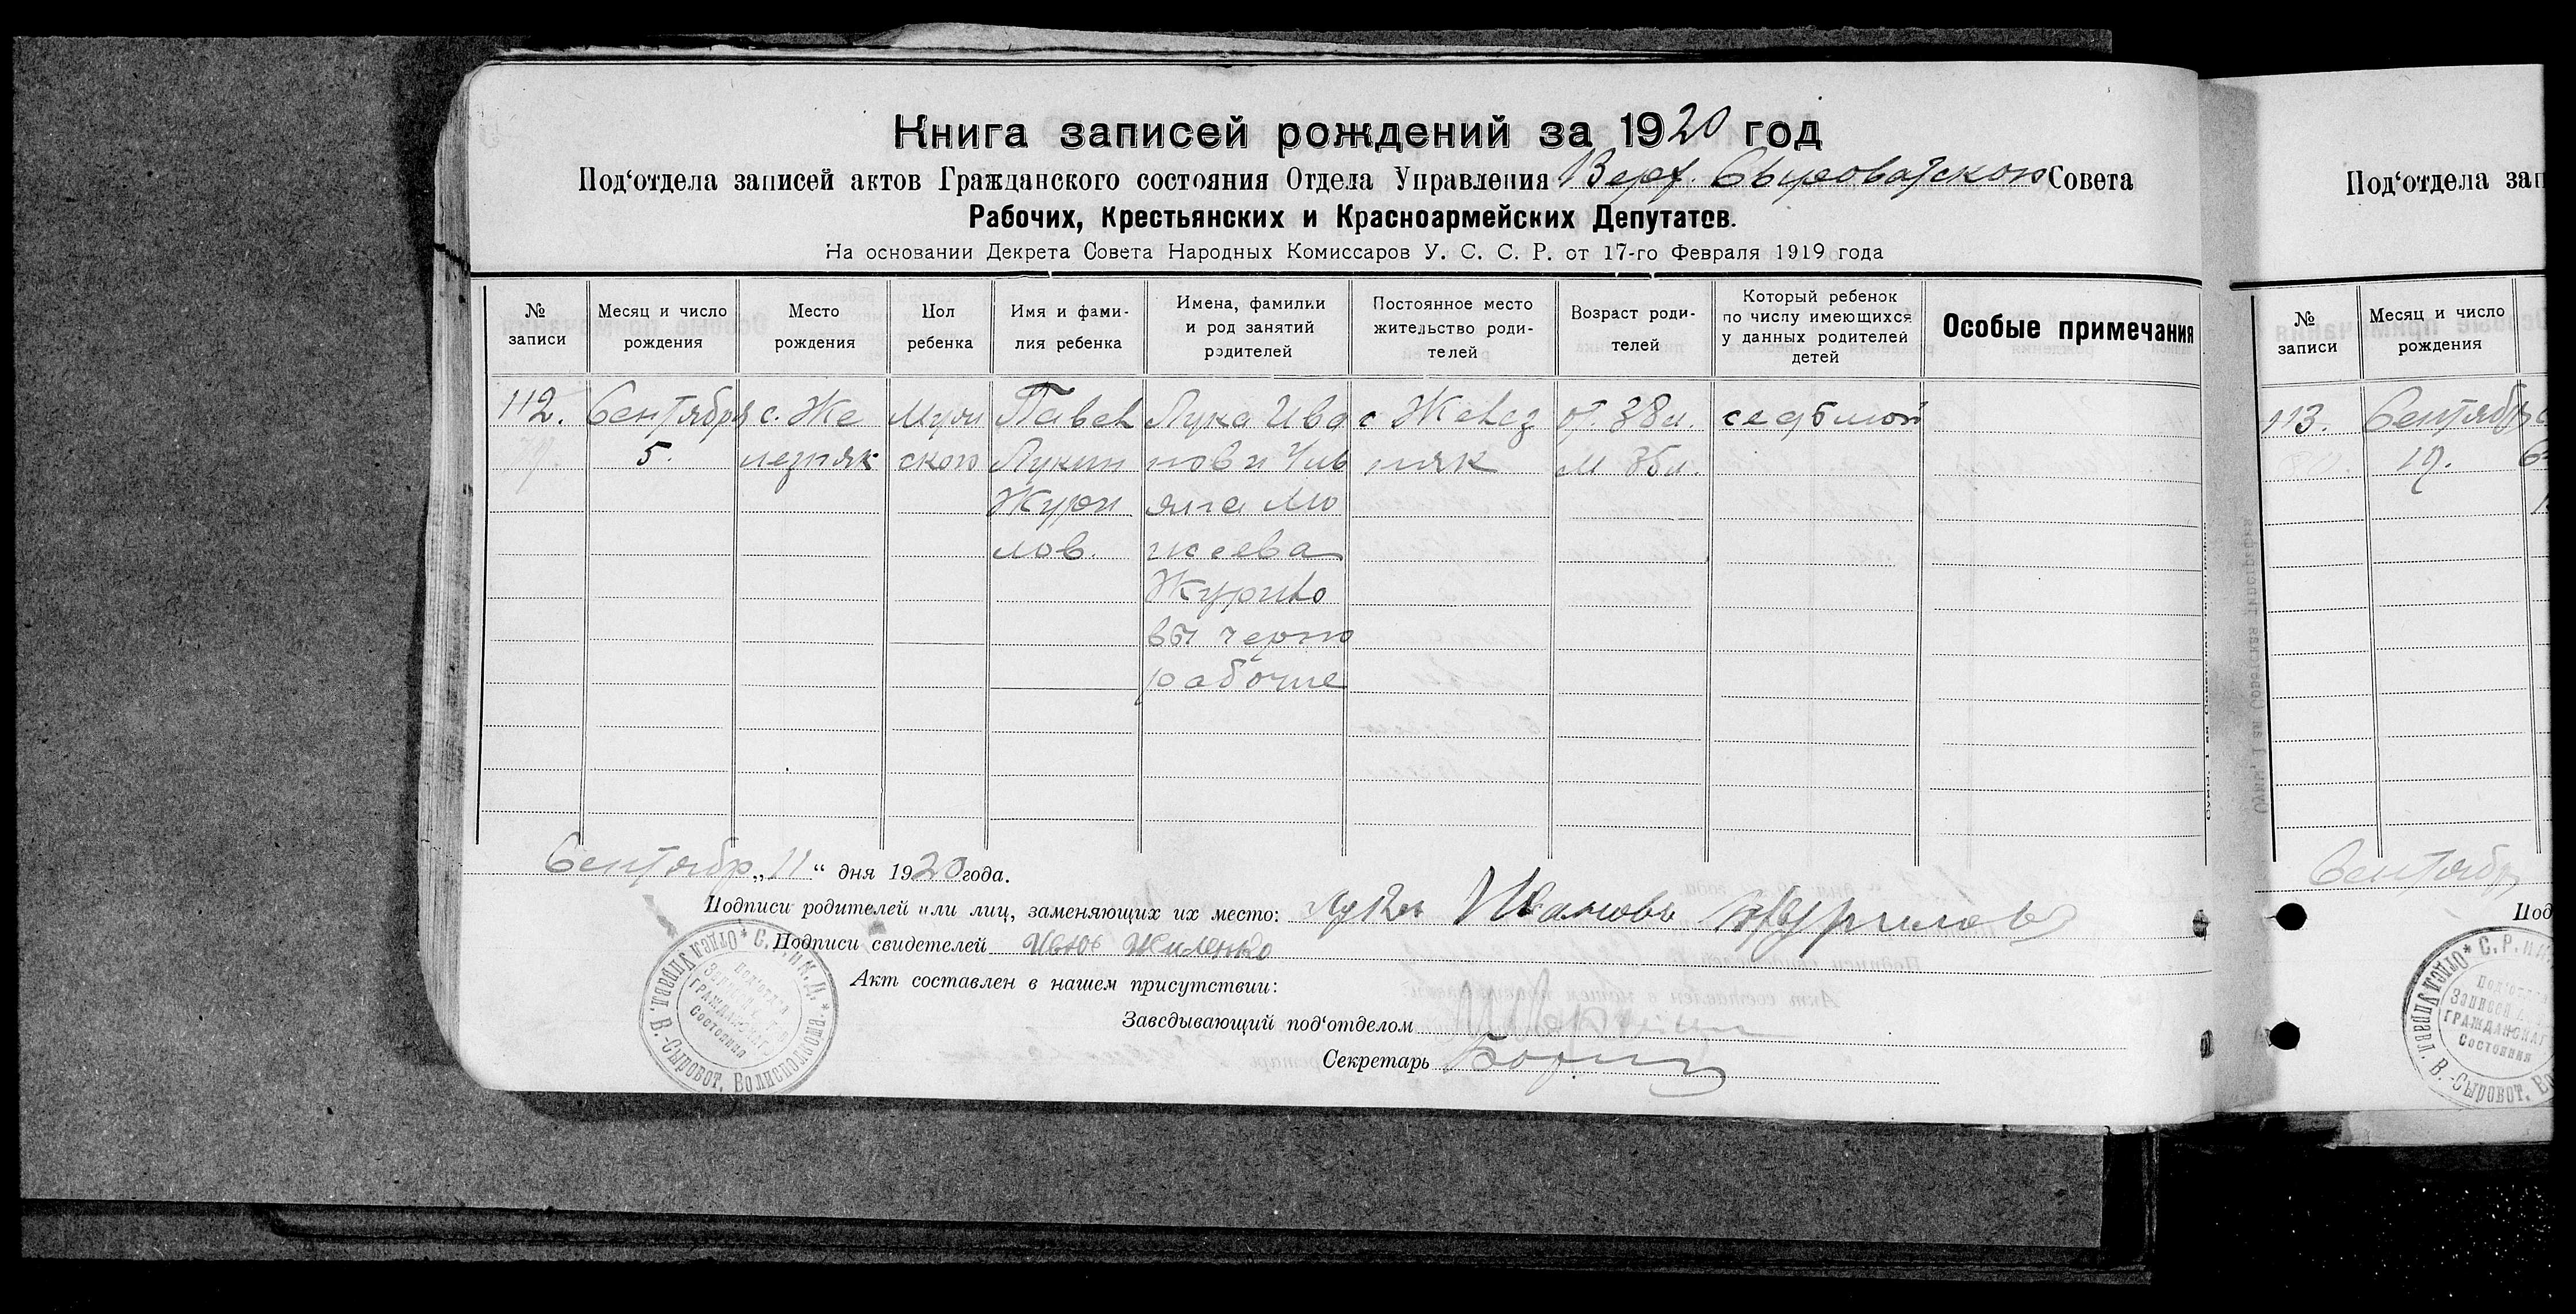 Книга записей рождений за 1920 год
Под‘отдела записей актов Гражданского состояния Отдела Управления Верх. Сыроватского Совета
Рабочих, Крестьянских и Красноармейских Депутатов.
На основании Декрета Совета Народных Комиссаров У. С. С. Р. от 17-го Февраля 1919 года
№ записи
Месяц и число рождения
Место рождения
Пол ребенка
Имя и фами-
лия ребенка
Имена, фамилии
и род занятий
родителей
Постоянное место
жительство роди-
телей
Возраст роди-
телей
Который ребенок
по числу имеющихся
у данных родителей
детей
Особые примечания
112.
Сентября
5.
с. Же
лезняк
Муж
ского
Павел
Лукин
Жури
лов.
Лука Ива
нов и Уль
яна Мо
жеева
Журило
вы черно
рабочие
с Желез
няк
от. 38 л.
м 36 л.
седьмой
Сентябр „11“ дня 1920 года.
Подписи родителей или лиц, заменяющих их место: Лука Ивановъ Журиловъ
Подписи свидетелей Жиленко
Акт составлен в нашем присутствии:
Заведывающий под‘отделом
Секретарь
Отдел Управл. В.-Сыроват. Волисполкома * С. Р. и К. Д. *
Под‘отдел
Записей
ГРАЖДАНСКАГ
Состояния
Под‘отдела зап
№ записи
Месяц и число
рождения
113.
Сентябр
19.
Сентябр
Под
Отдел Управл. В.-Сыроват. * С. Р. и К.
Под‘отдел
Записей
ГРАЖДАНСКАГ
Состояния